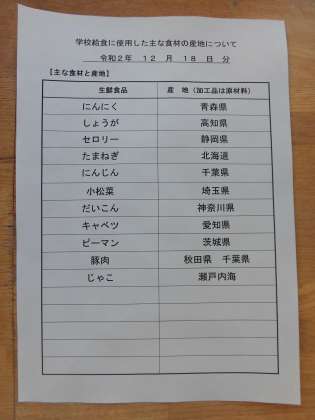 学校給食に使用した主な食材の産地について
令和2年 12 月 18 日 分
【主な食材と産地】
生鮮食品 産 地（加工品は原材料）
にんにく 青森県
しょうが 高知県
セロリー 静岡県
たまねぎ 北海道
にんじん 千葉県
小松菜 埼玉県
だいこん 神奈川県
キャベツ 愛知県
ピーマン 茨城県
豚肉 秋田県 千葉県
じゃこ 瀬戸内海